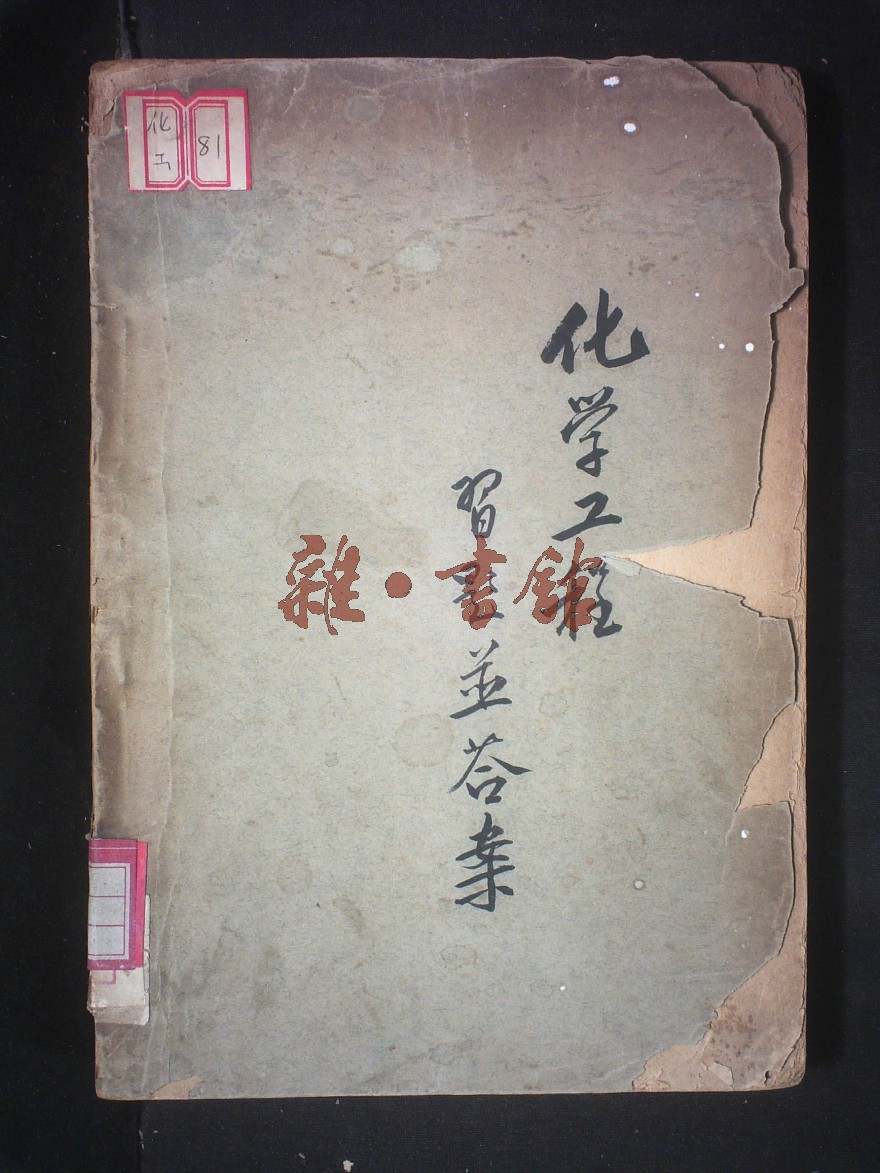 化工
81
化学工程
習題並荅案
雜·書館